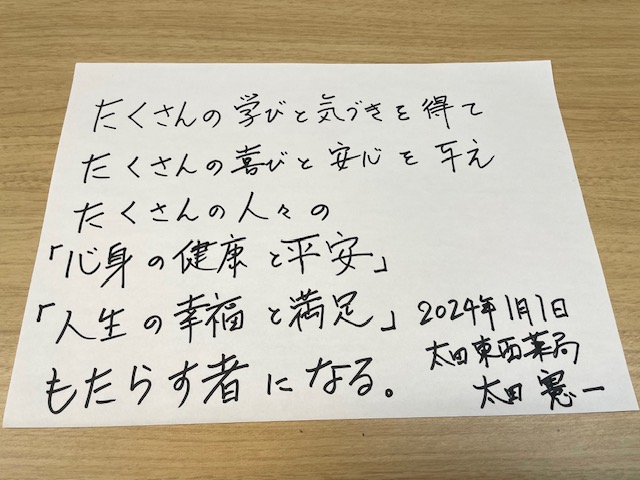 たくさんの学びと気づきを得て
たくさんの喜びと安心を与え
たくさんの人々の
「心身の健康と平安」
「人生の幸福と満足」
もたらす者になる。
2024年1月1日
太田東西薬局
太田憲一